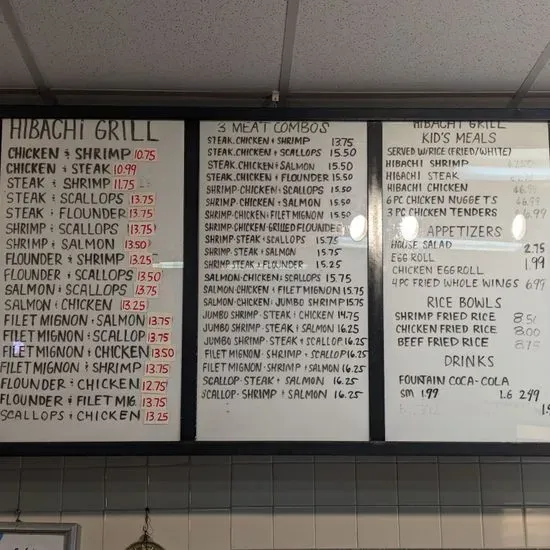 HIBACHI GRILL
CHICKEN & SHRIMP 10.75
CHICKEN & STEAK 10.99
STEAK & SHRIMP 11.75
STEAK & SCALLOPS 13.75
STEAK & FLOUNDER 13.75
SHRIMP & SCALLOPS 13.75
SHRIMP & SALMON 13.50
FLOUNDER & SHRIMP 13.25
FLOUNDER & SCALLOPS 13.50
SALMON & SCALLOPS 13.75
SALMON & CHICKEN 13.25
FILET MIGNON & SALMON 13.75
FILET MIGNON & SCALLOP 13.75
FILET MIGNON & CHICKEN 13.50
FILET MIGNON & SHRIMP 13.75
FLOUNDER & CHICKEN 12.75
FLOUNDER & FILET MIG. 13.75
SCALLOPS & CHICKEN 13.25
3 MEAT COMBOS
STEAK.CHICKEN & SHRIMP 13.75
STEAK.CHICKEN & SCALLOPS 15.50
STEAK.CHICKEN & SALMON 15.50
STEAK.CHICKEN & FLOUNDER 15.50
SHRIMP-CHICKEN & SCALLOPS 15.50
SHRIMP-CHICKEN & SALMON 15.50
SHRIMP-CHICKEN & FILET MIGNON 15.50
SHRIMP-CHICKEN & GRILLED FLOUNDER
SHRIMP-STEAK & SCALLOPS 15.75
SHRIMP-STEAK & SALMON 15.75
SHRIMP STEAK & FLOUNDER 15.25
SALMON-CHICKEN & SCALLOPS 15.75
SALMON-CHICKEN & FILET MIGNON 15.75
SALMON-CHICKEN & JUMBO SHRIMP 15.75
JUMBO SHRIMP - STEAK & CHICKEN 14.75
JUMBO SHRIMP - STEAK & SALMON 16.25
JUMBO SHRIMP - STEAK & SCALLOP 16.25
FILET MIGNON - SHRIMP & SCALLOP 16.25
FILET MIGNON - SHRIMP & SALMON 16.25
SCALLOP - STEAK & SALMON 16.25
SCALLOP - SHRIMP & SALMON 16.25
HIBACHI GRILL
KID'S MEALS
SERVED W/RICE (FRIED/WHITE)
HIBACHI SHRIMP
HIBACHI STEAK
HIBACHI CHICKEN $6.99
6 PC CHICKEN NUGGETS $6.99
3 PC CHICKEN TENDERS $6.99
APPETIZERS
HOUSE SALAD 2.75
EGG ROLL 1.99
CHICKEN EGG ROLL
4 PC FRIED WHOLE WINGS 6.99
RICE BOWLS
SHRIMP FRIED RICE 8.50
CHICKEN FRIED RICE 8.00
BEEF FRIED RICE
DRINKS
FOUNTAIN COCA-COLA
SM 1.99 LG 2.49